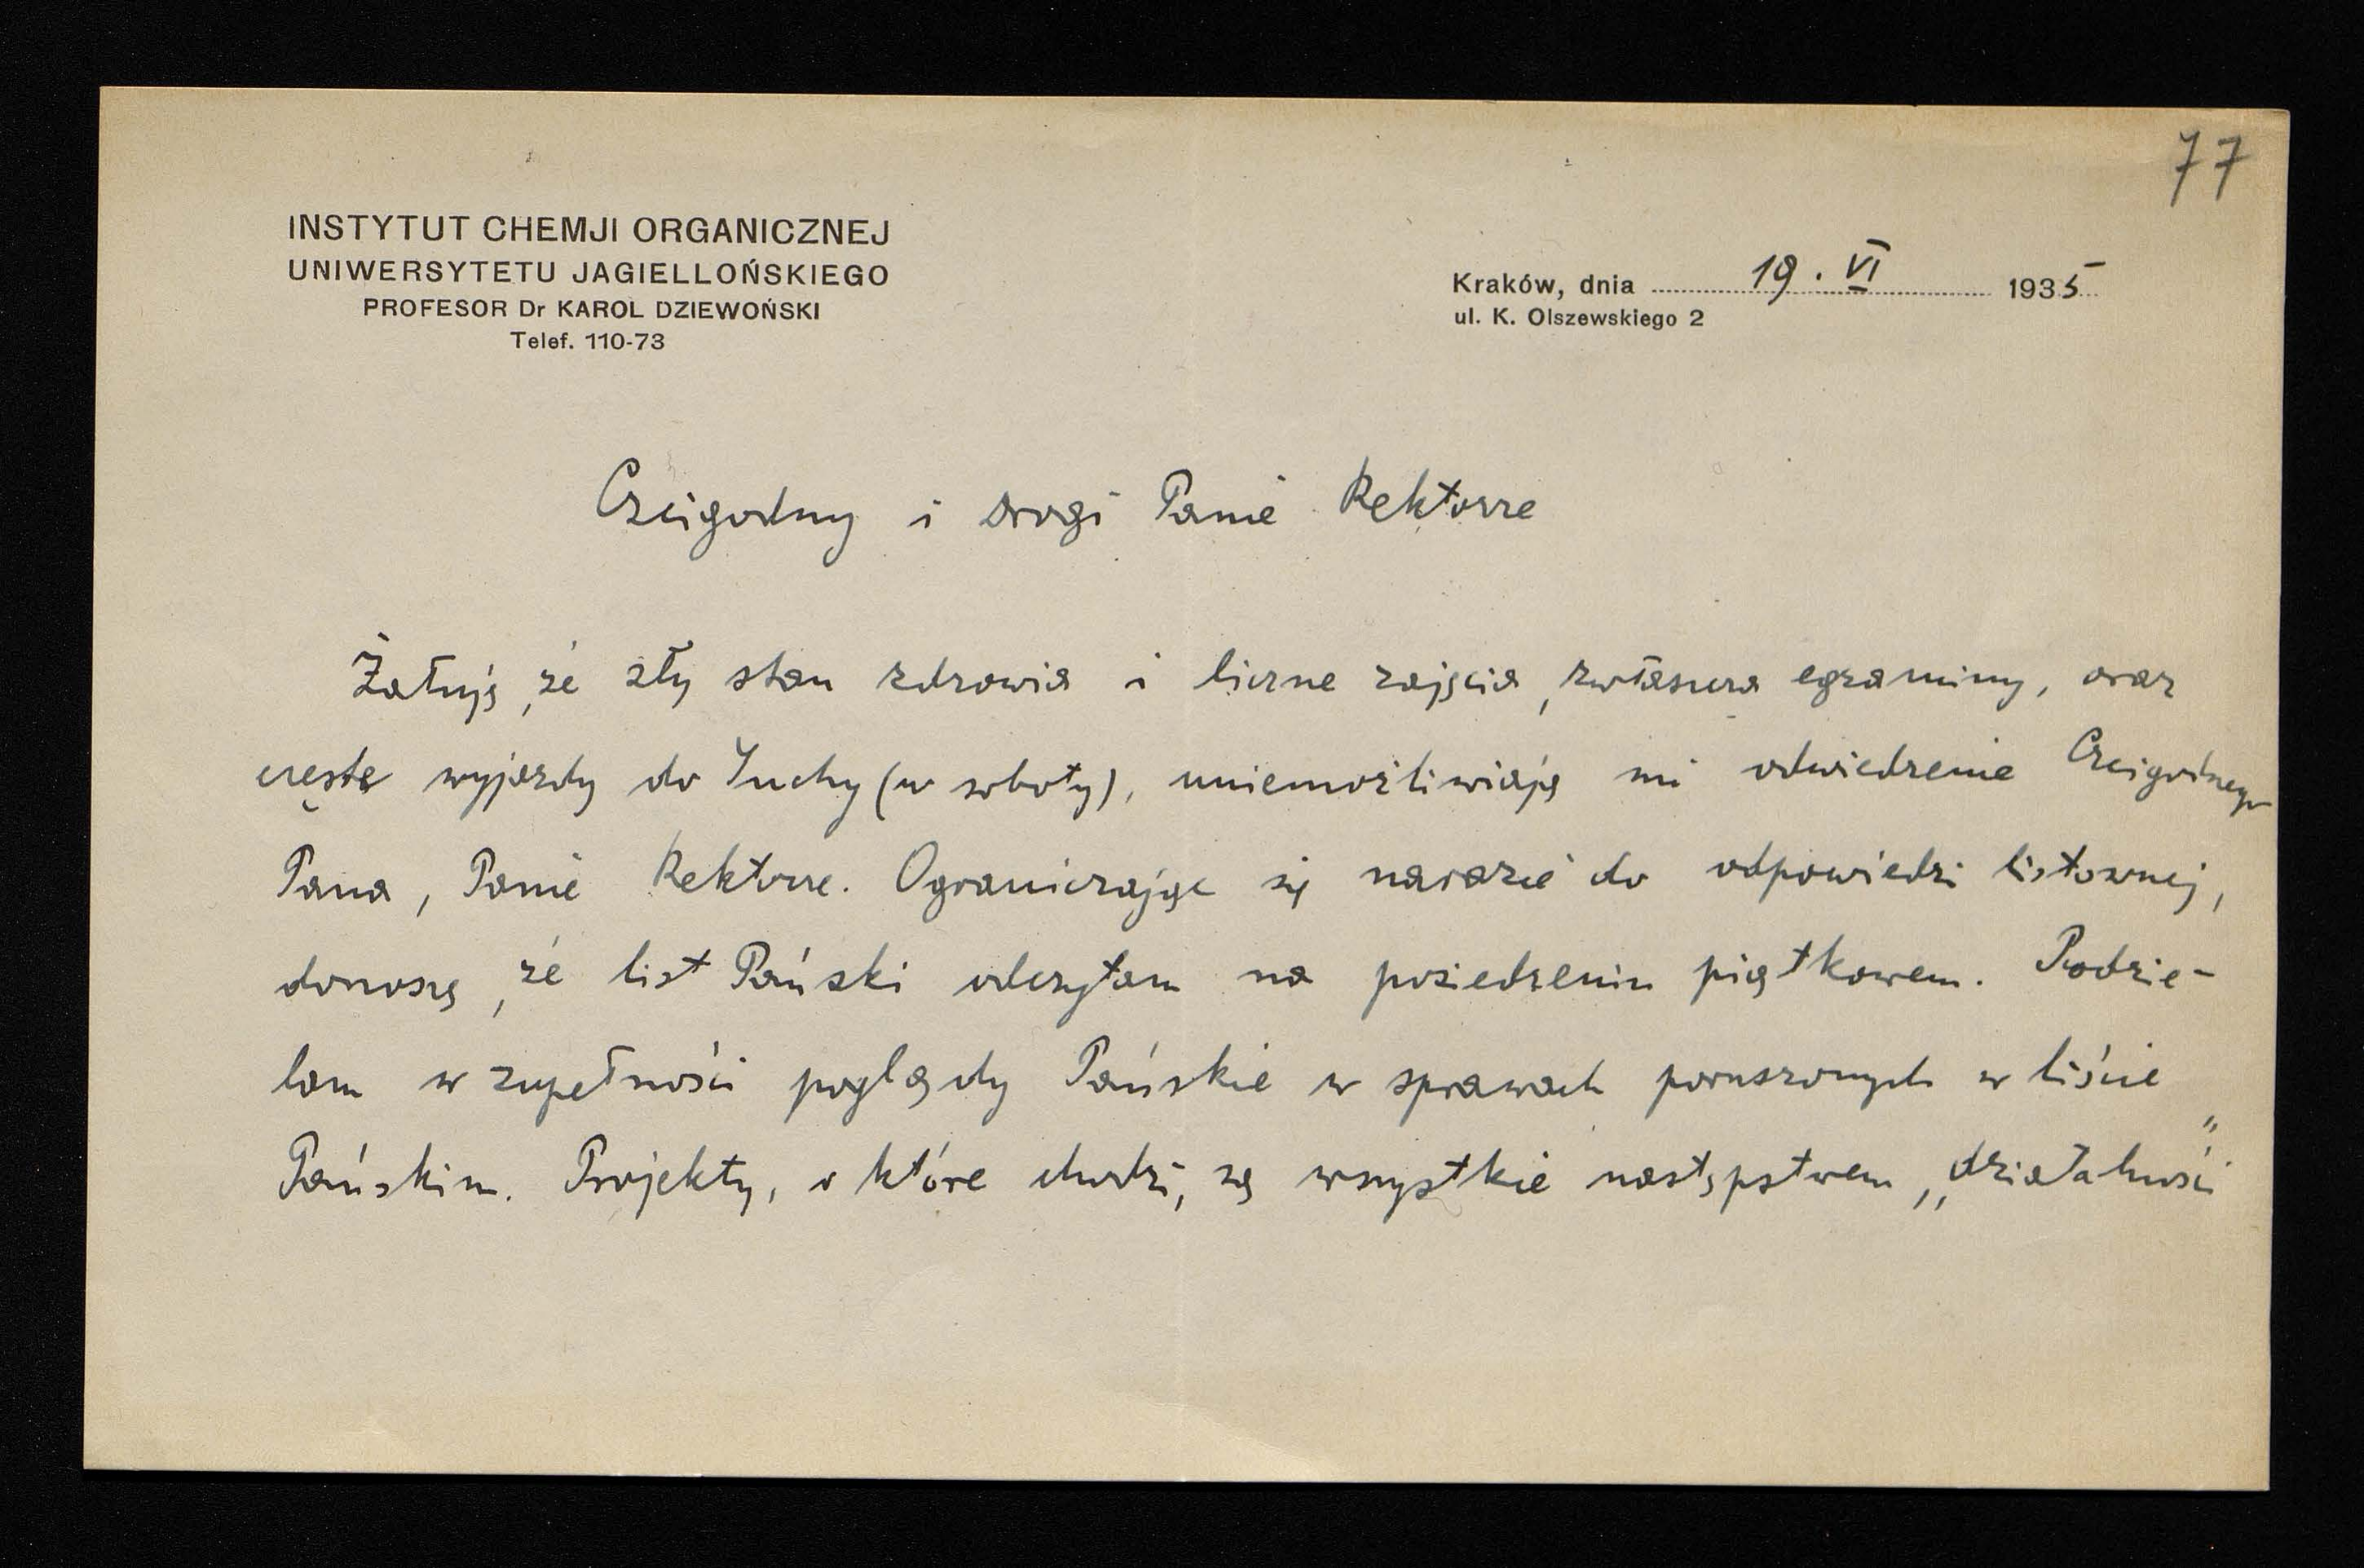 77
INSTYTUT CHEMJI ORGANICZNEJ
UNIWERSYTETU JAGIELLOŃSKIEGO
PROFESOR Dr KAROL DZIEWOŃSKI
Telef. 110-73
Kraków, dnia 19. VI 1935
ul. K. Olszewskiego 2
Czcigodny i Drogi Panie Rektorze
Żałuję, że zły stan zdrowia i liczne zajęcia, zwłaszcza egzaminy, oraz
częste wyjazdy do Suchy (w soboty), uniemożliwiają mi odwiedzenie Czcigodnego
Pana, Panie Rektorze. Ograniczając się narazie do odpowiedzi listownej,
donoszę, że list Pański odczytam na posiedzeniu piątkowem. Podzie-
lam w zupełności poglądy Pańskie w sprawach poruszonych w liście
Pańskim. Projekty, o które chodzi, są wszystkie następstwem „działalności"